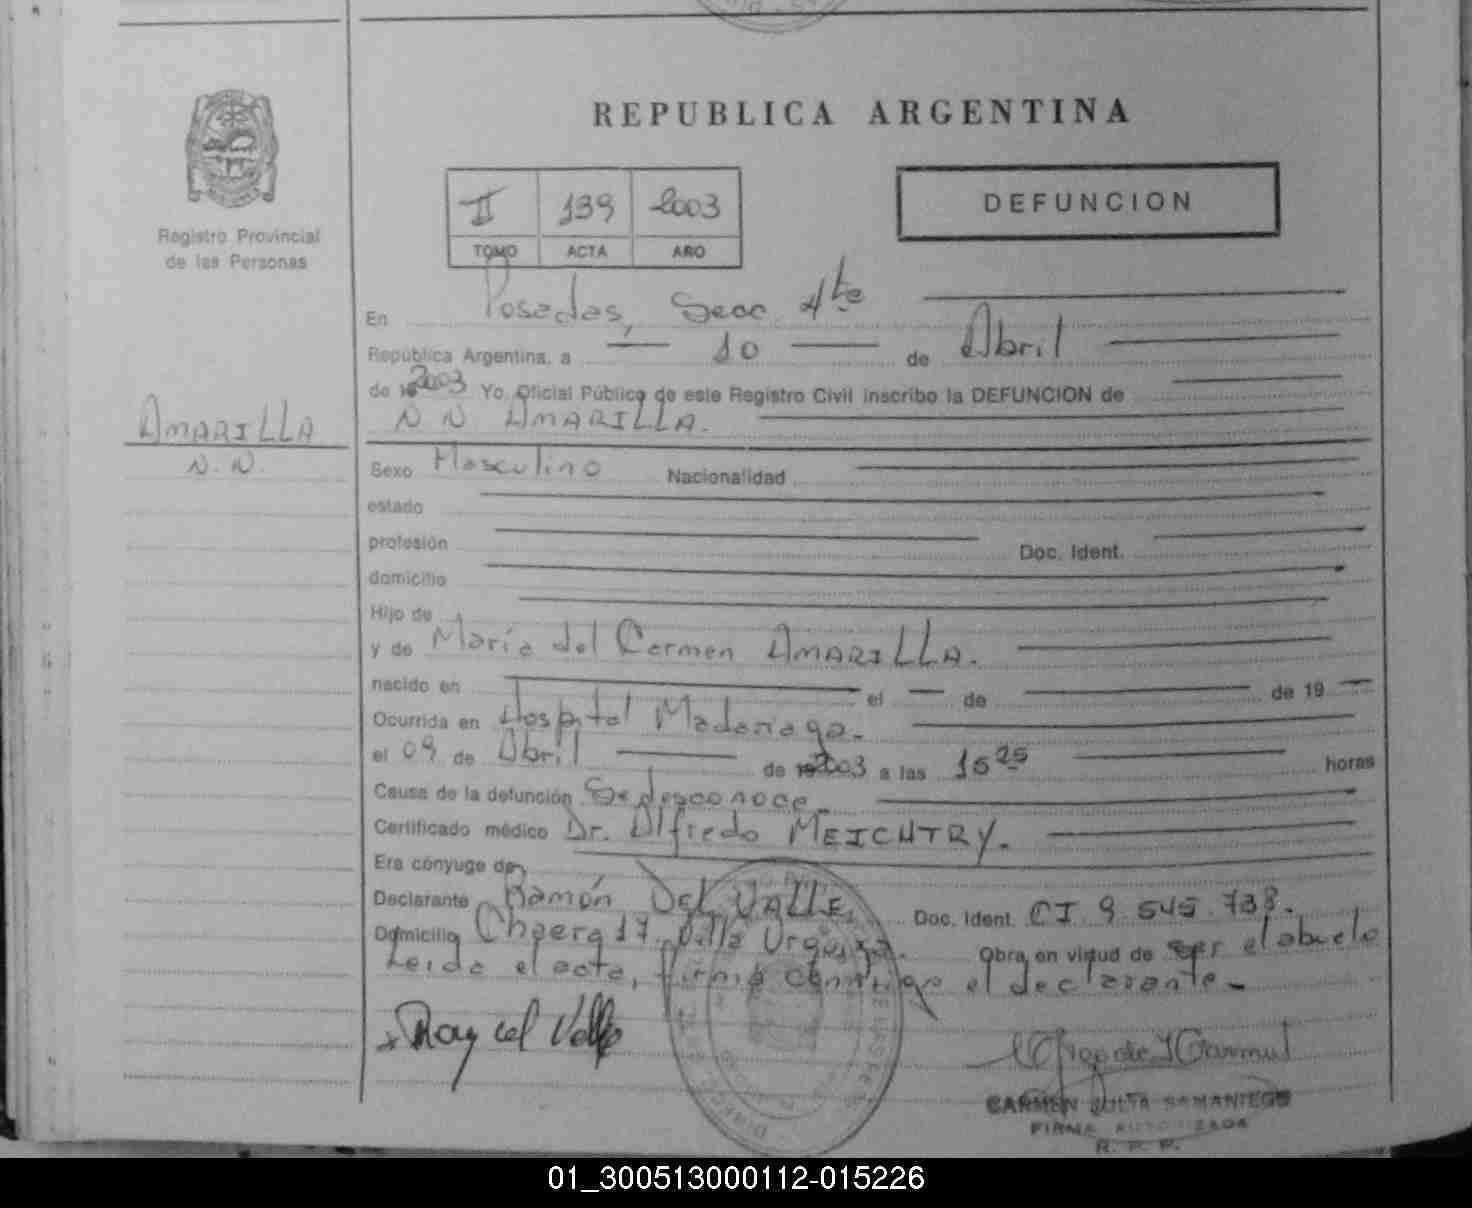 REPUBLICA ARGENTINA
Registro Provincial
de las Personas
II 139 2003
TOMO ACTA AÑO
DEFUNCION
En Posadas, Secc. 4ta
República Argentina, a 10 de Abril
de 2003 Yo, Oficial Público de este Registro Civil inscribo la DEFUNCION de
N N AMARILLA.
AMARILLA
N. N.
Sexo Masculino Nacionalidad
estado
profesión Doc. Ident.
domicilio
Hijo de
y de María del Carmen AMARILLA.
nacido en el de de 19
Ocurrida en Hospital Madariaga.
el 09 de Abril de 2003 a las 15 25 horas
Causa de la defunción Se desconoce.
Certificado médico Dr. Alfredo MEICHTRY.
Era cónyuge de
Declarante Ramón DEL VALLE, Doc. Ident. CI 9.545.738.
Domicilio Chacra 17. Villa Urquiza. Obra en virtud de ser el abuelo
Leída el acta, firma conmigo el declarante.
CARMEN JULIA SAMANIEGO
FIRMA AUTORIZADA
R. P. P.
01_300513000112-015226